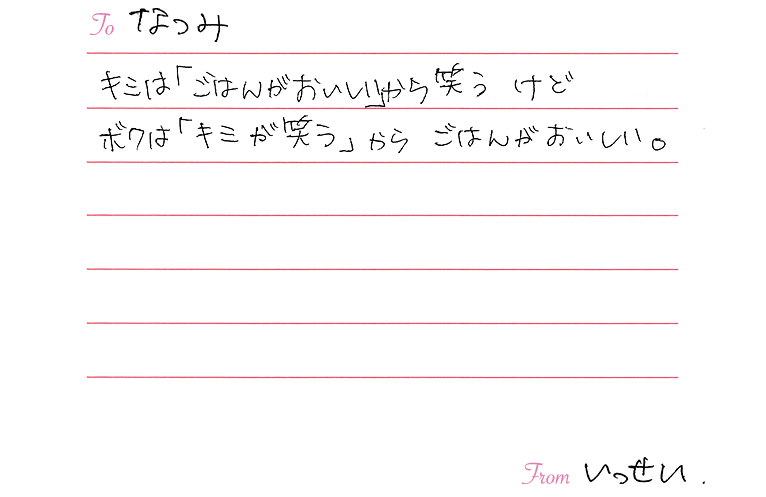 To なつみ
キミは「ごはんがおいしい」から笑う けど
ボクは「キミが笑う」から ごはんがおいしい。
From いっせい.